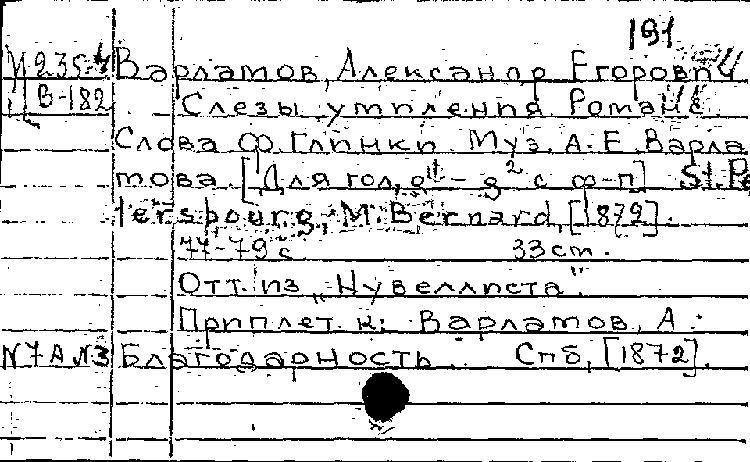 191
М 235-4 Варламов, Александр Егорович
В-182 Слезы умиления. Романс.
Слова Ф. Глинки. Муз. А. Е. Варла-
мова. [Для гол. d¹ - g² с ф-п] St. Pe-
tersbourg, M. Bernard, [1872].
77-79 с 33 см.
Отт. из „Нувеллиста"
Приплет. к: Варламов, А.
N7AN3 Благодарность. Спб, [1872].